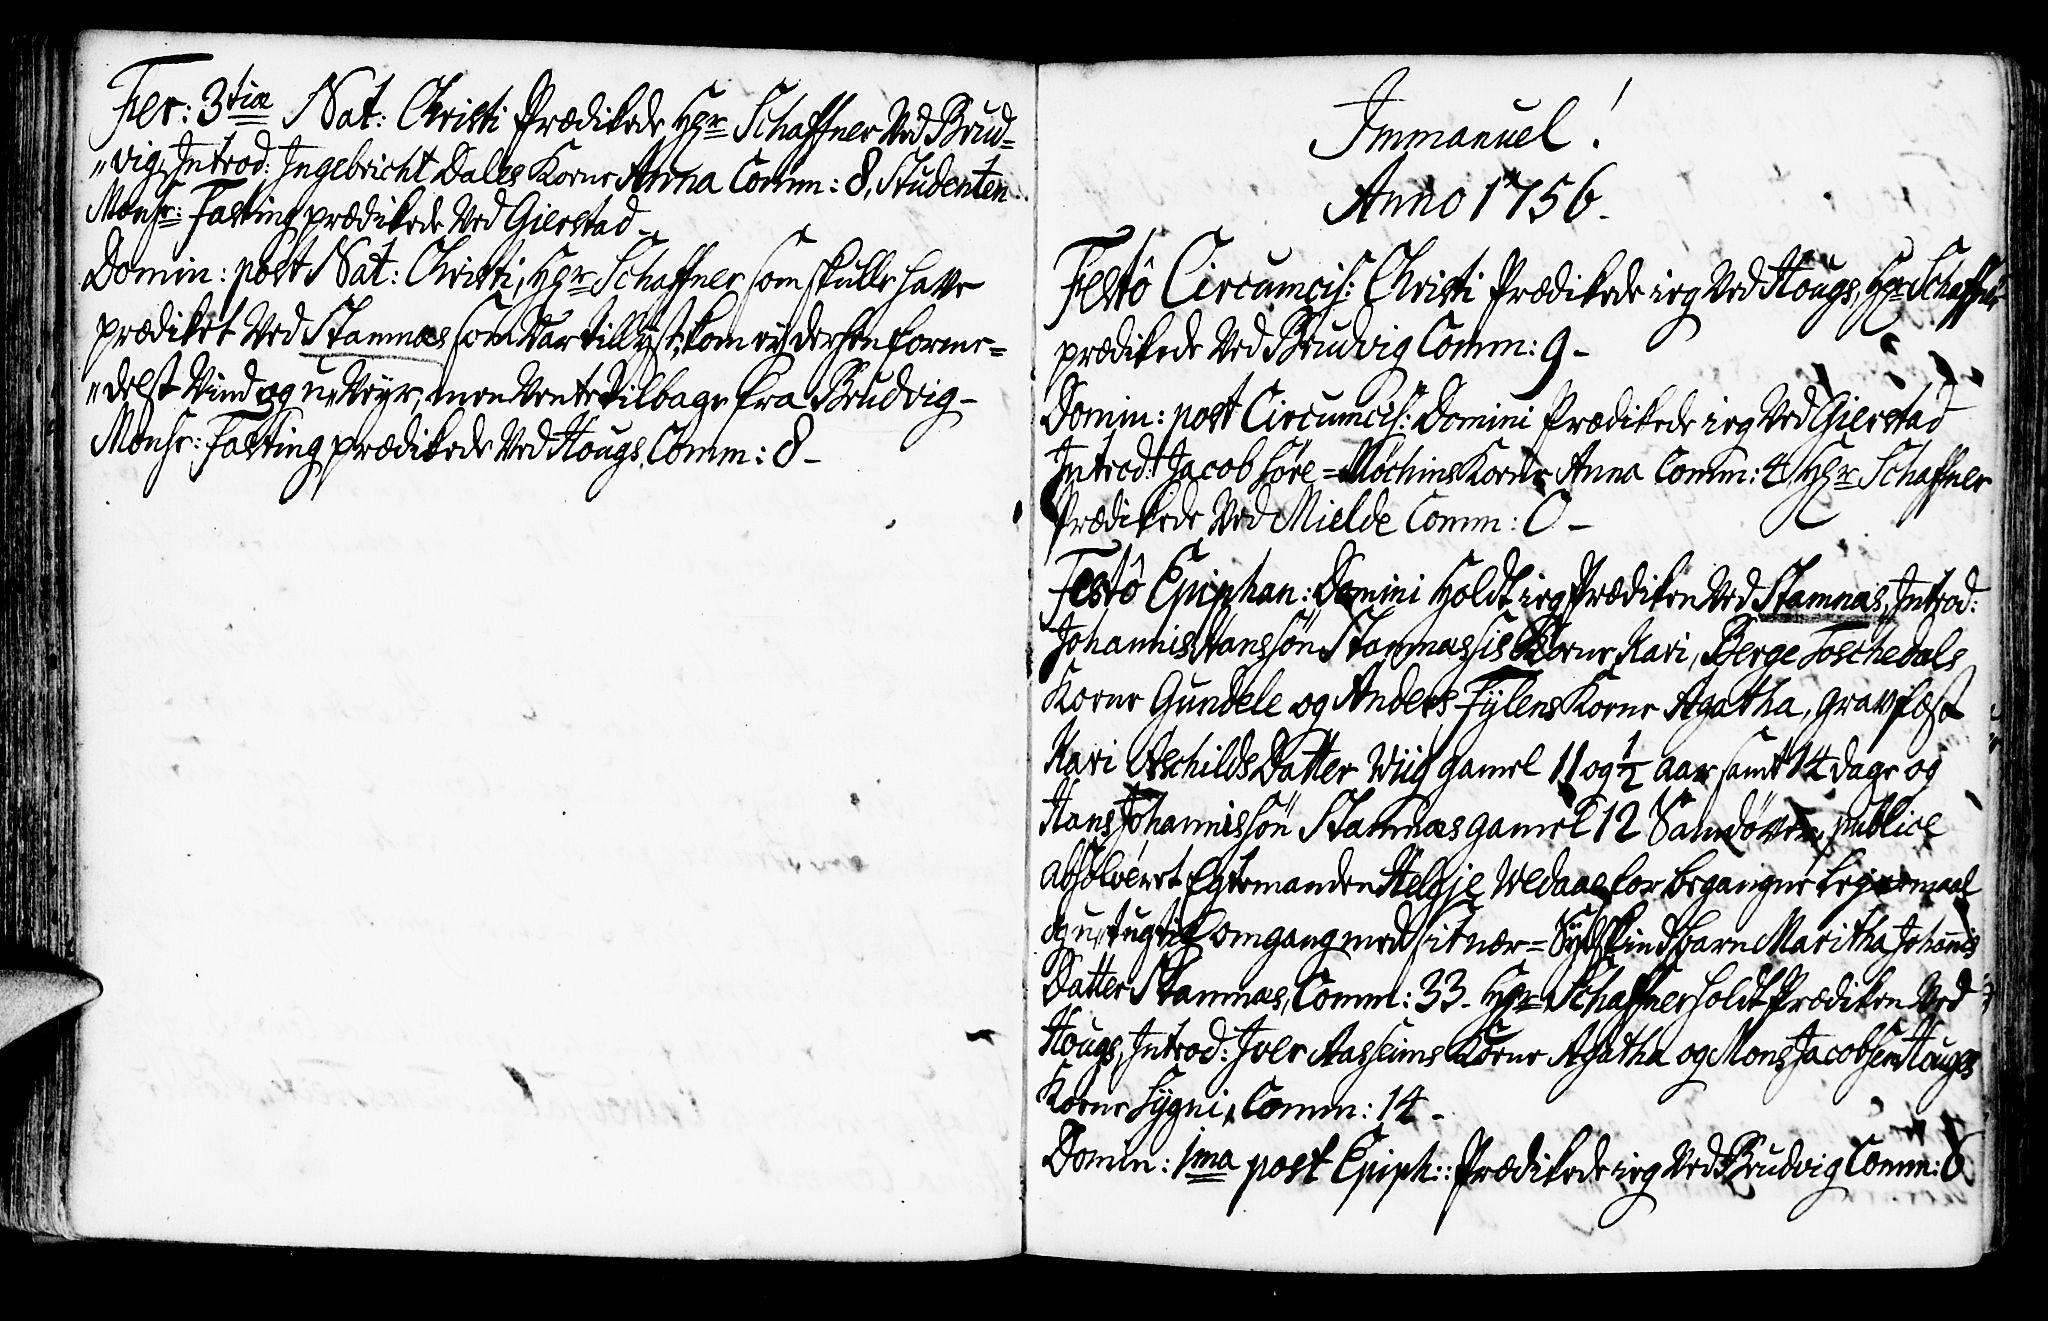 Fer: 3tiæ Nat: Christi Prædikede Hgr Schaffner Ved Brud=
"vig, Introd: Ingebricht Dales Kone Anna Comm: 8, Studenten
Monsr: Fasting prædikede Ved Gierstad_
Domin: post Nat: Christi, Hgr Schaffner som skulle have
prædiket Ved Stamnæs som var tillyst, kom ej derhen forme=
"delst Vind og u,,Vejr, men Vente tilbage fra Brudvig_
Monsr: Fasting prædikede Ved Hougs, Comm: 8_
Immanuel!
Anno 1756.
Festô Circumcis: Christi Prædikede ieg Ved Hougs, Hgr Schaffner
prædikede Ved Brudvig Comm: 9_
Domin: post Circumcis: Domini Prædikede ieg Ved Gierstad
Introd: Jacob Søre=Møchins Kone Anna Comm: 4, Hgr Schaffner
Prædikede Ved Mielde Comm: 0_
Festô Epiphan: Domini Holdt ieg Prædiken Ved Stamnæs, Introd:
Johannis Hanssøn Stamnæssis Kone Kari, Berge Foschedals
Kone Gundele og Anders Fylens Kone Agatha, gravfæst
Kari Aschilds Datter Wiig gamel 11 og 1/2 aar samt 14 dage og
Hans Johannissøn Stamnæs gamel 12 publice
absolveret Egtemanden Helgje Wedaae for begangne Lejermaal
og u,,tugtig omgang med sit nær=Sydskindbarn Maritha Johannis
Datter Stamnæs, Comm: 33_ Hgr Schaffner holdt Prædiken Ved
Hougs, Introd: Iver Aasheims Kone Agatha og Mons Jacobsen Hougs
Kone Sygni, Comm: 14_
Domin: 1ma post Epiph:: Prædikede ieg Ved Brudvig Comm: 8